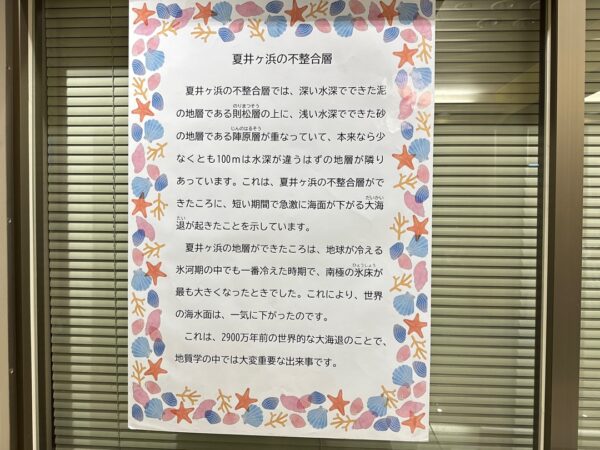 夏井ヶ浜の不整合層
夏井ヶ浜の不整合層では、深い水深でできた泥
の地層である則松層の上に、浅い水深でできた砂
の地層である陣原層が重なっていて、本来なら少
なくとも100mは水深が違うはずの地層が隣り
あっています。これは、夏井ヶ浜の不整合層がで
きたころに、短い期間で急激に海面が下がる大海
退が起きたことを示しています。
夏井ヶ浜の地層ができたころは、地球が冷える
氷河期の中でも一番冷えた時期で、南極の氷床が
最も大きくなったときでした。これにより、世界
の海水面は、一気に下がったのです。
これは、2900万年前の世界的な大海退のことで、
地質学の中では大変重要な出来事です。